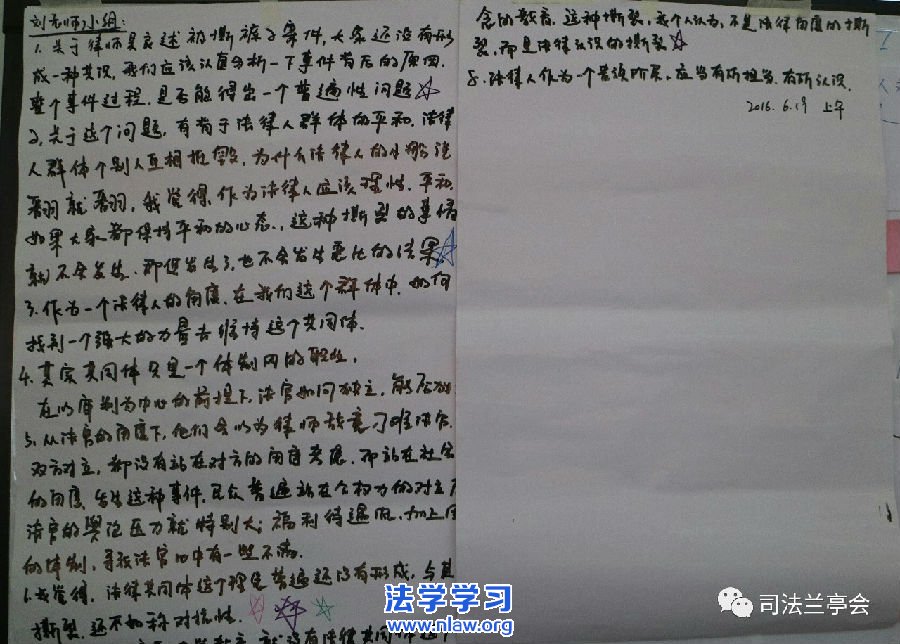 刘老师小组：
1.关于律师吴良述被撕裤子事件，大家还没有形
成一种共识，我们应该认真分析一下事件背后的原因，
整个事件过程，是否能得出一个普遍性问题☆
2.关于这个问题，有看于法律人群体的平和，法律
人群体个别人互相抵毁，为什么法律人的小船说
翻就翻，我觉得，作为法律人应该理性，平和，
如果大家都保持平和的心态，这种撕裂的事情
就不会发生，即便发生了，也不会发生恶化的结果☆
3.作为一个法律人的角度，在我们这个群体中，如何
找到一个强大的力量去维持这个共同体。
4.其实共同体只是一个体制内的职业，
在以审判为中心的前提下，法官如何独立，能否
5.从法官的角度下，他们会以为律师故意刁难法官，
双方对立，都没有站在对方的角度考虑，而站在社会
的角度，发生这种事件，民众普遍站在公权力的对立
法官的舆论压力就特别大；福利待遇
的体制，导致法官心中有一些不满。
6.我觉得，法律共同体这个理念普遍还没有形成，与其
撕裂，还不如称对抗性
就没有法律共同体这个
念的教育。这种撕裂，我个人认为，不是法律角度的撕
裂，而是法律认识的撕裂☆
8.法律人作为一个尝试阶层，应当有所担当，有所认识。
2016.6.19 上午
法学学习
www.nlaw.org
司法兰亭会